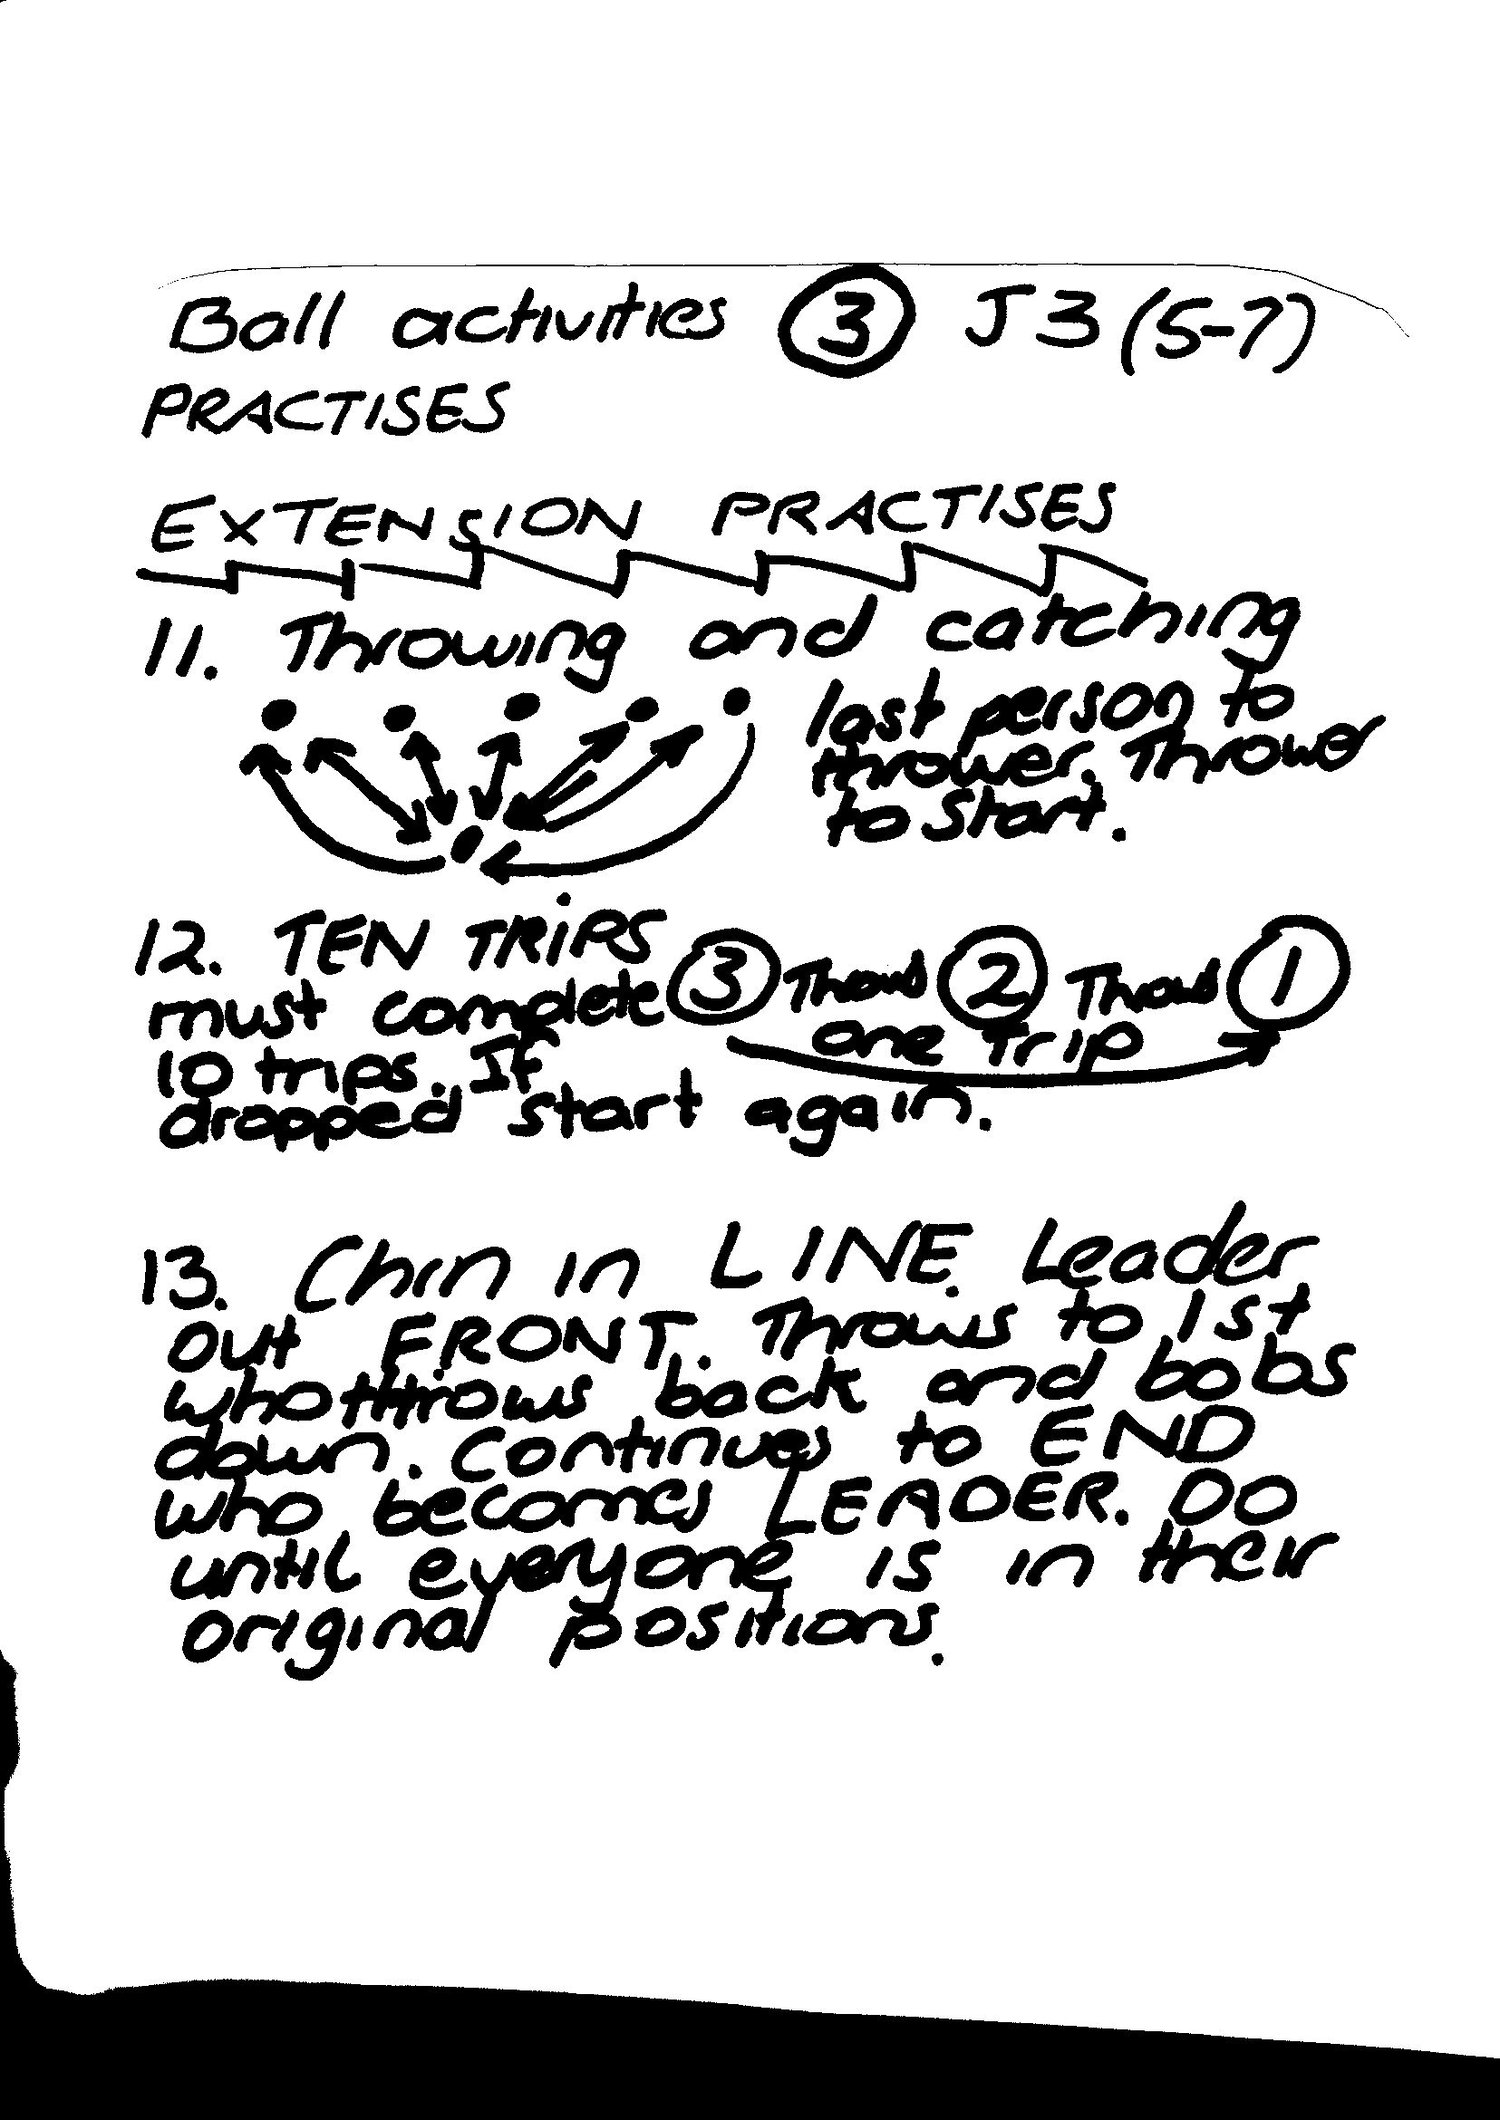 Ball activities 3 J3 (5-7)
PRACTISES
EXTENSION PRACTISES
11. Throwing and catching
last person to
thrower. Thrower
to start.
12. TEN TRiPS
must complete
10 trips. If
dropped start again.
3 Throws 2 Throws 1
one Trip
13. Chn in LINE. Leader
out FRONT. Throws to 1st
who throws back and bobs
down. Continues to END
who becomes LEADER. DO
until everyone is in their
original positions.